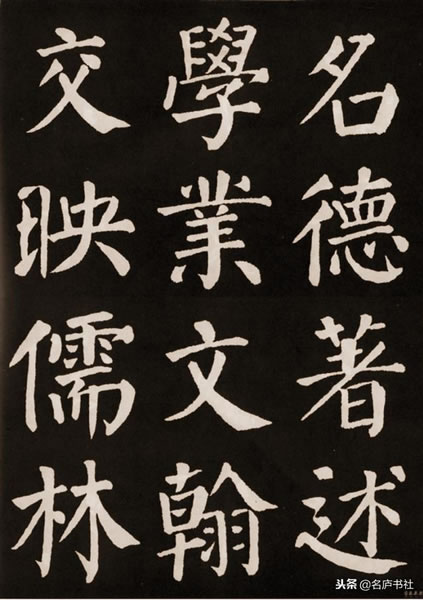 名德著述
學業文翰
交映儒林
头条 @名庐书社